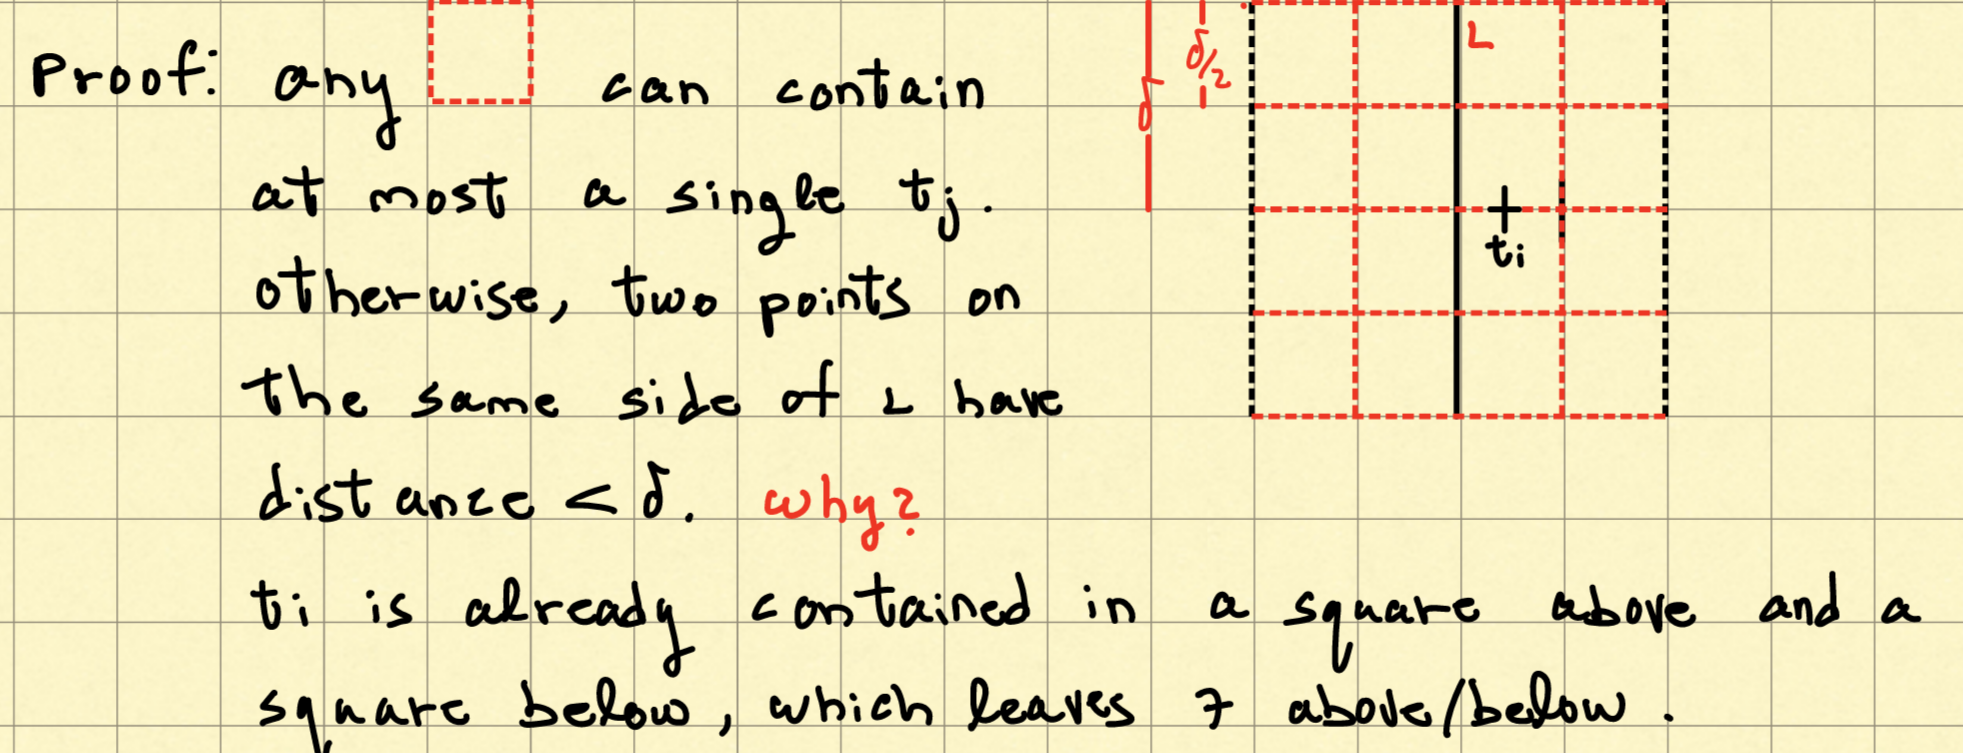 Proof: any can contain
at most a single tj.
otherwise, two points on
the same side of L have
distance < δ. why?
ti is already contained in a square above and a
square below, which leaves 7 above/below.
δ
δ/2
L
ti